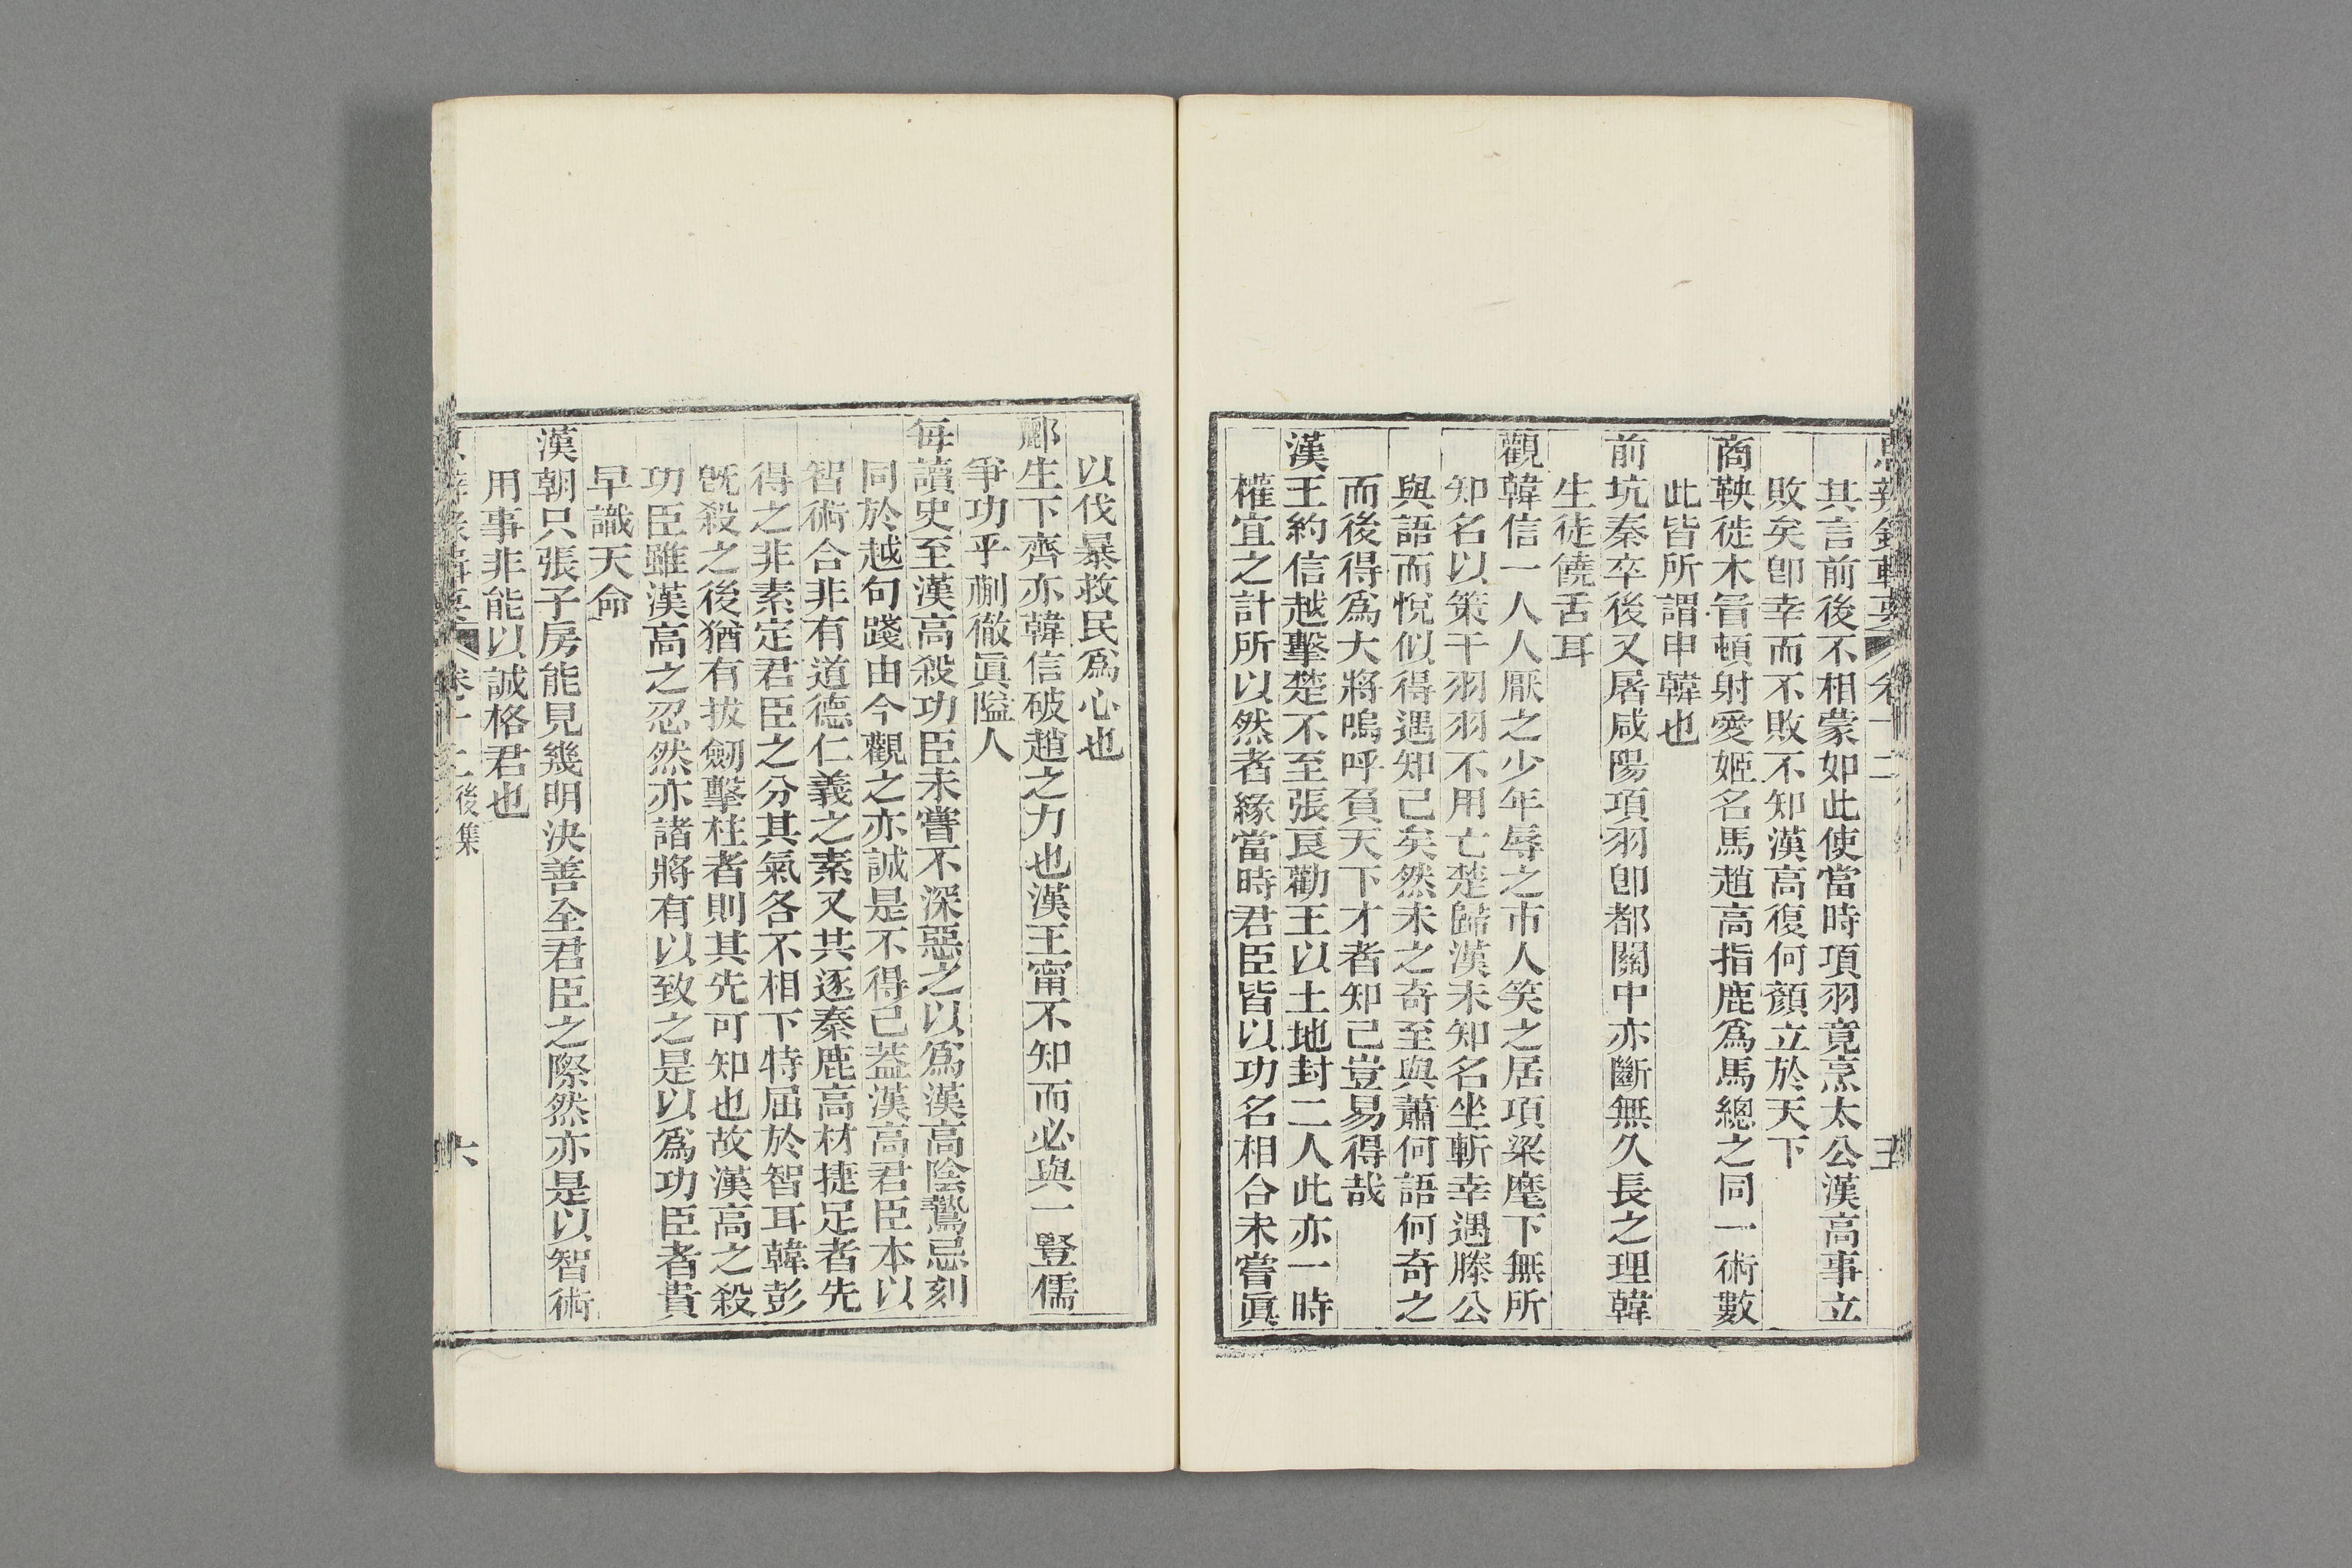 思辨錄輯要 卷十二 五
其言前後不相蒙如此使當時項羽竟烹太公漢高事立
敗矣卽幸而不敗不知漢高復何顏立於天下
商鞅徙木冒頓射愛姬名馬趙高指鹿爲馬總之同一術數
此皆所謂申韓也
前坑秦卒後又屠咸陽項羽卽都關中亦斷無久長之理韓
生徒饒舌耳
觀韓信一人人厭之少年辱之市人笑之居項梁麾下無所
知名以策干羽羽不用亡楚歸漢未知名坐斬幸遇滕公
與語而悅似得遇知己矣然未之奇至與蕭何語何奇之
而後得爲大將嗚呼負天下才者知己豈易得哉
漢王約信越擊楚不至張良勸王以土地封二人此亦一時
權宜之計所以然者緣當時君臣皆以功名相合未嘗眞
以伐暴救民爲心也
酈生下齊亦韓信破趙之力也漢王甯不知而必與一豎儒
爭功乎蒯徹眞隘人
每讀史至漢高殺功臣未嘗不深惡之以爲漢高陰鷙忌刻
同於越句踐由今觀之亦誠是不得已蓋漢高君臣本以
智術合非有道德仁義之素又共逐秦鹿高材捷足者先
得之非素定君臣之分其氣各不相下特屈於智耳韓彭
旣殺之後猶有拔劒擊柱者則其先可知也故漢高之殺
功臣雖漢高之忍然亦諸將有以致之是以爲功臣者貴
早識天命
漢朝只張子房能見幾明決善全君臣之際然亦是以智術
用事非能以誠格君也
思辨錄輯要 卷十二後集 六